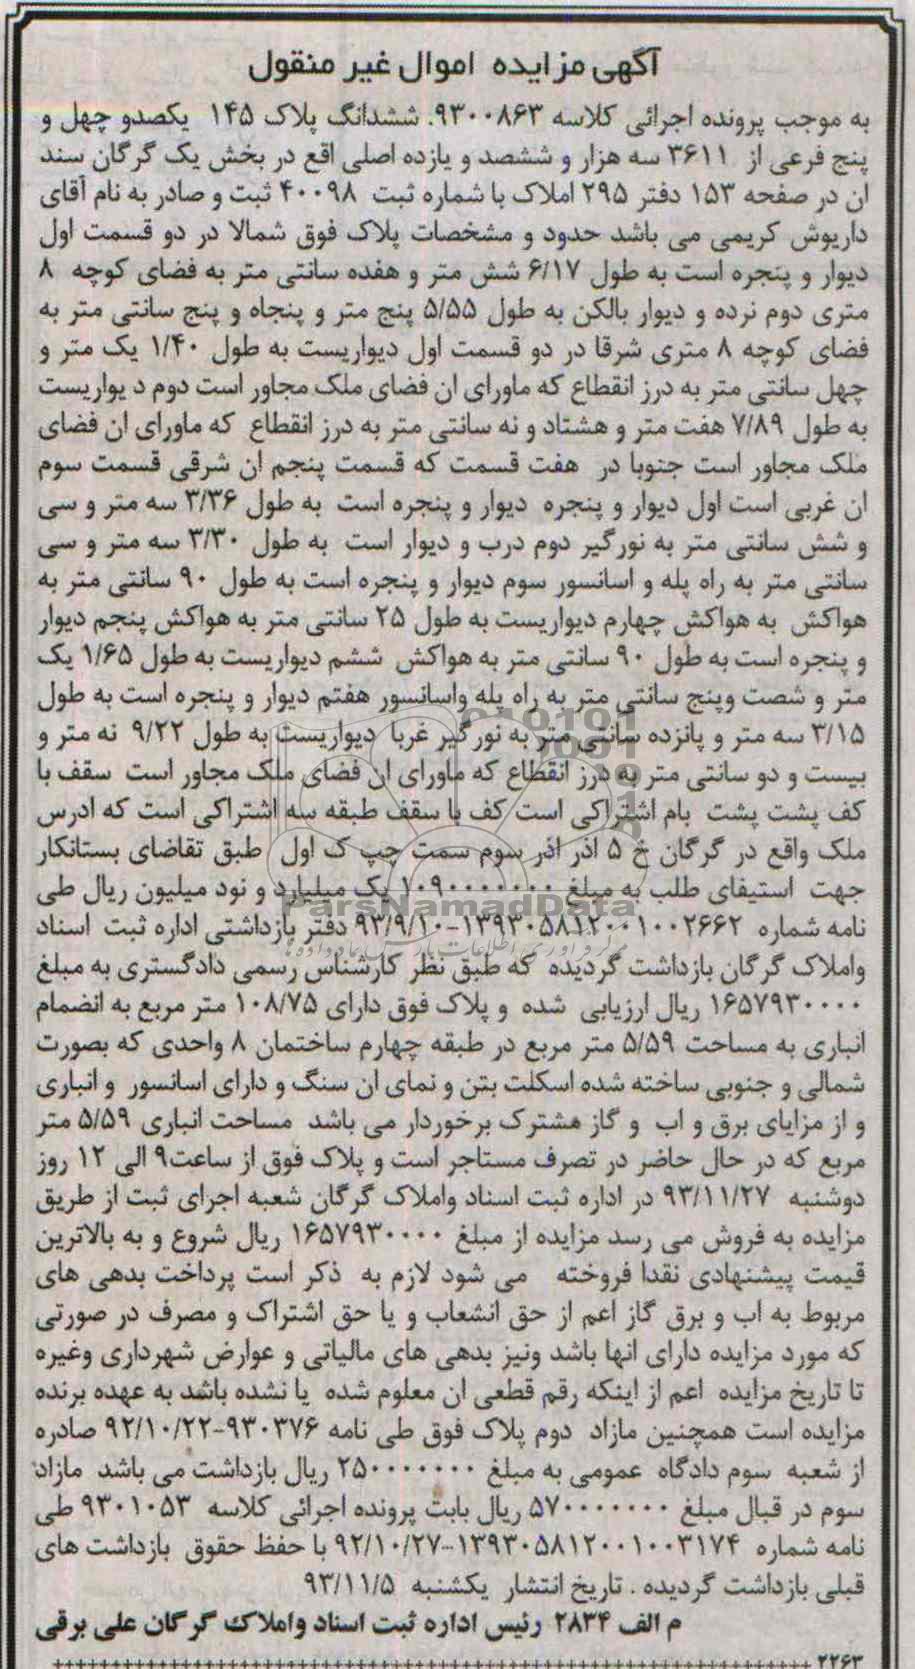 آگهی مزایده اموال غیر منقول
به موجب پرونده اجرائی کلاسه ۹۳۰۰۸۶۳. ششدانگ پلاک ۱۴۵ یکصدو چهل و
پنج فرعی از ۳۶۱۱ سه هزار و ششصد و یازده اصلی اقع در بخش یک گرگان سند
ان در صفحه ۱۵۳ دفتر ۲۹۵ املاک با شماره ثبت ۴۰۰۹۸ ثبت و صادر به نام آقای
داریوش کریمی می باشد حدود و مشخصات پلاک فوق شمالا در دو قسمت اول
دیوار و پنجره است به طول ۶/۱۷ شش متر و هفده سانتی متر به فضای کوچه ۸
متری دوم نرده و دیوار بالکن به طول ۵/۵۵ پنج متر و پنجاه و پنج سانتی متر به
فضای کوچه ۸ متری شرقا در دو قسمت اول دیواریست به طول ۱/۴۰ یک متر و
چهل سانتی متر به درز انقطاع که ماورای ان فضای ملک مجاور است دوم د یواریست
به طول ۷/۸۹ هفت متر و هشتاد و نه سانتی متر به درز انقطاع که ماورای ان فضای
ملک مجاور است جنوبا در هفت قسمت که قسمت پنجم ان شرقی قسمت سوم
ان غربی است اول دیوار و پنجره دیوار و پنجره است به طول ۳/۳۶ سه متر و سی
و شش سانتی متر به نورگیر دوم درب و دیوار است به طول ۳/۳۰ سه متر و سی
سانتی متر به راه پله و اسانسور سوم دیوار و پنجره است به طول ۹۰ سانتی متر به
هواکش به هواکش چهارم دیواریست به طول ۲۵ سانتی متر به هواکش پنجم دیوار
و پنجره است به طول ۹۰ سانتی متر به هواکش ششم دیواریست به طول ۱/۶۵ یک
متر و شصت وپنج سانتی متر به راه پله واسانسور هفتم دیوار و پنجره است به طول
۳/۱۵ سه متر و پانزده سانتی متر به نورگیر غربا دیواریست به طول ۹/۲۲ نه متر و
بیست و دو سانتی متر به درز انقطاع که ماورای ان فضای ملک مجاور است سقف با
کف پشت پشت بام اشتراکی است کف با سقف طبقه سه اشتراکی است که ادرس
ملک واقع در گرگان خ ۵ اذر اذر سوم سمت چپ ک اول طبق تقاضای بستانکار
جهت استیفای طلب به مبلغ ۱۰۹۰۰۰۰۰۰۰ یک میلیارد و نود میلیون ریال طی
نامه شماره ۱۳۹۳۰۵۸۱۲۰۰۱۰۰۲۶۶۲-۹۳/۹/۱۰ دفتر بازداشتی اداره ثبت اسناد
واملاک گرگان بازداشت گردیده که طبق نظر کارشناس رسمی دادگستری به مبلغ
۱۶۵۷۹۳۰۰۰۰ ریال ارزیابی شده و پلاک فوق دارای ۱۰۸/۷۵ متر مربع به انضمام
انباری به مساحت ۵/۵۹ متر مربع در طبقه چهارم ساختمان ۸ واحدی که بصورت
شمالی و جنوبی ساخته شده اسکلت بتن و نمای ان سنگ و دارای اسانسور و انباری
و از مزایای برق و اب و گاز مشترک برخوردار می باشد مساحت انباری ۵/۵۹ متر
مربع که در حال حاضر در تصرف مستاجر است و پلاک فوق از ساعت۹ الی ۱۲ روز
دوشنبه ۹۳/۱۱/۲۷ در اداره ثبت اسناد واملاک گرگان شعبه اجرای ثبت از طریق
مزایده به فروش می رسد مزایده از مبلغ ۱۶۵۷۹۳۰۰۰۰ ریال شروع و به بالاترین
قیمت پیشنهادی نقدا فروخته می شود لازم به ذکر است پرداخت بدهی های
مربوط به اب و برق گاز اعم از حق انشعاب و یا حق اشتراک و مصرف در صورتی
که مورد مزایده دارای انها باشد ونیز بدهی های مالیاتی و عوارض شهرداری وغیره
تا تاریخ مزایده اعم از اینکه رقم قطعی ان معلوم شده یا نشده باشد به عهده برنده
مزایده است همچنین مازاد دوم پلاک فوق طی نامه ۹۳۰۳۷۶-۹۲/۱۰/۲۲ صادره
از شعبه سوم دادگاه عمومی به مبلغ ۲۵۰۰۰۰۰۰۰ ریال بازداشت می باشد مازاد
سوم در قبال مبلغ ۵۷۰۰۰۰۰۰۰ ریال بابت پرونده اجرائی کلاسه ۹۳۰۱۰۵۳ طی
نامه شماره ۱۳۹۳۰۵۸۱۲۰۰۱۰۰۳۱۷۴-۹۲/۱۰/۲۷ با حفظ حقوق بازداشت های
قبلی بازداشت گردیده . تاریخ انتشار یکشنبه ۹۳/۱۱/۵
م الف ۲۸۳۴ رئیس اداره ثبت اسناد واملاک گرگان علی برقی
۲۲۶۳
ParsNamadData